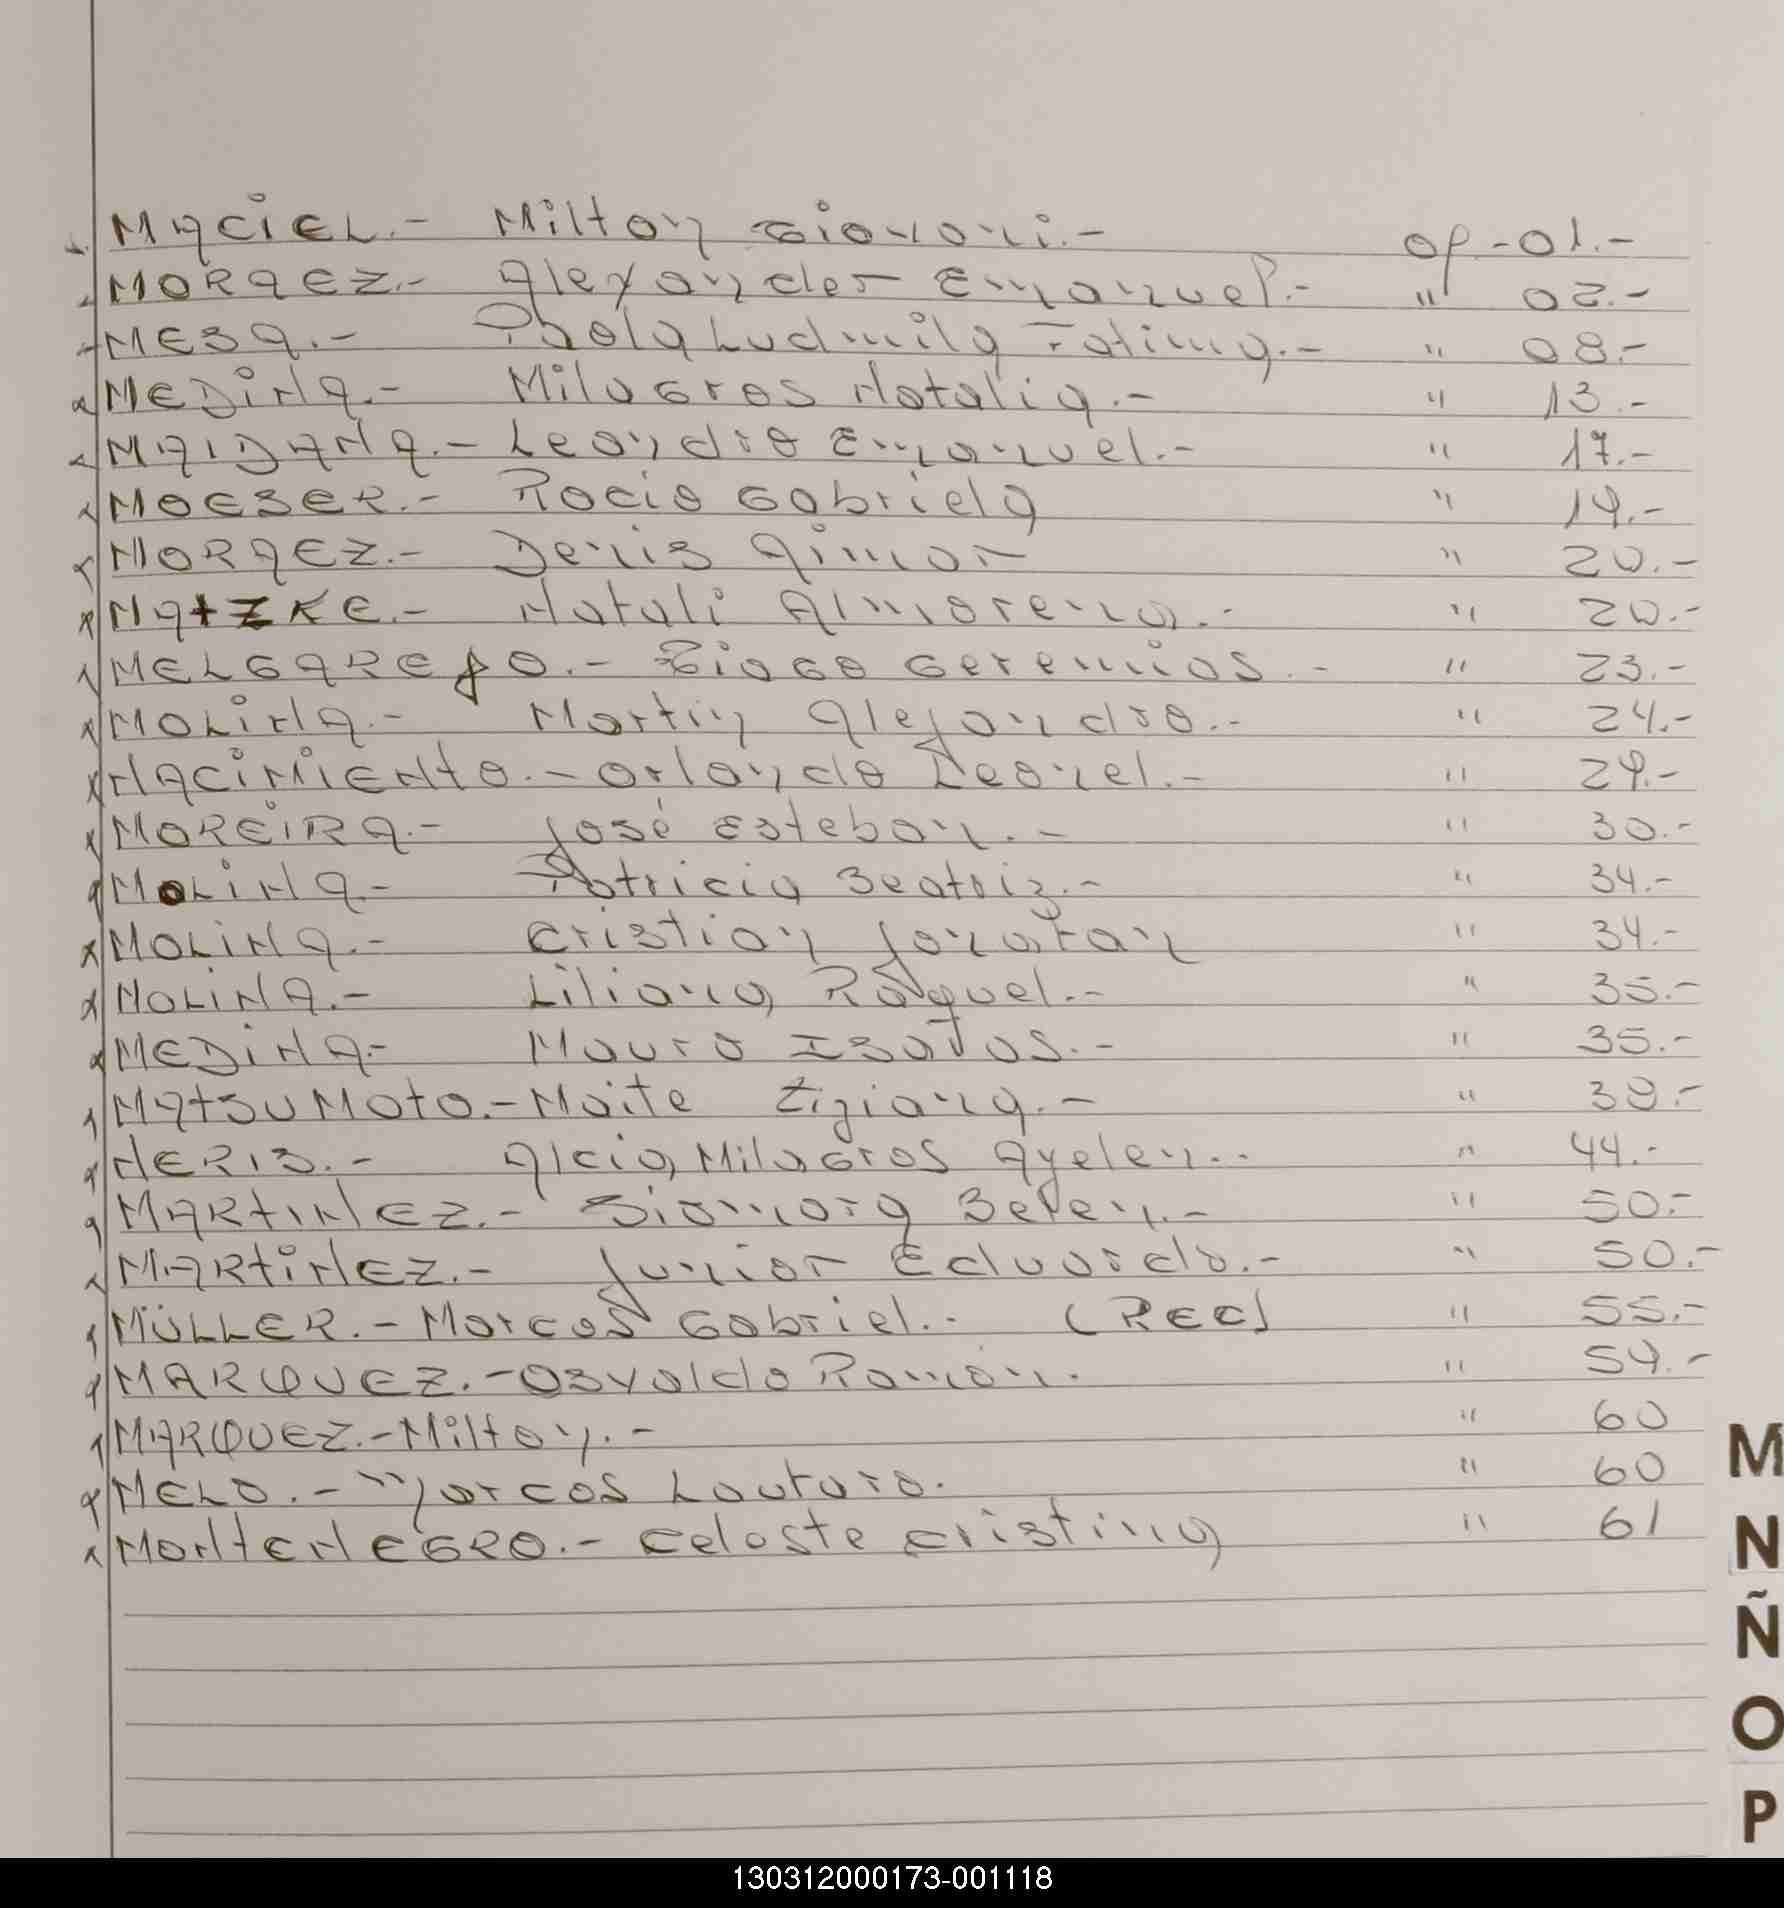 MACIEL.- Milton Giovani.- OP - 01.-
MORAEZ.- Alexander Emanuel.- " 02.-
MESA.- Paola Ludmila Fatima.- " 08.-
MEDINA.- Milagros Natalia.- " 13.-
MAIDANA.- Leandro Emanuel.- " 17.-
MOESER.- Rocio Gabriela " 19.-
MORAEZ.- Denis Aimar " 20.-
MATZKE.- Natali Almorena.- " 20.-
MELGAREJO.- Tiago Geremias.- " 23.-
MOLINA.- Martin Alejandro.- " 24.-
NACIMIENTO.- Orlando Leonel.- " 29.-
MOREIRA.- José Esteban.- " 30.-
MOLINA.- Patricia Beatriz.- " 34.-
MOLINA.- Cristian Jonatan " 34.-
MOLINA.- Liliana Raquel.- " 35.-
MEDINA.- Mauro Isaias.- " 35.-
MATSUMOTO.- Maite Tiziana.- " 38.-
NERIS.- Alcia Milagros Ayelen.. " 44.-
MARTINEZ.- Siomara Belen.- " 50.-
MARTINEZ.- Junior Eduardo.- " 50.-
MÜLLER.- Marcos Gabriel.- (REC) " 55.-
MARQUEZ.- Osvaldo Ramón. " 59.-
MARQUEZ.- Milton.- " 60
MELO.- Marcos Lautaro. " 60
MONTENEGRO.- Celeste Cristina " 61
M
N
Ñ
O
P
130312000173-001118